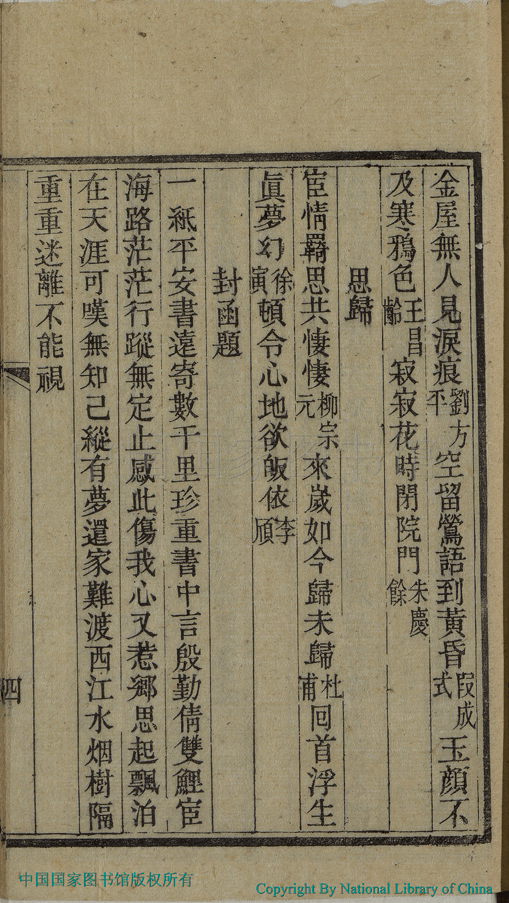 金屋無人見淚痕劉方平空留鶯語到黃昏段成式玉顏不
及寒鴉色王昌齡寂寂花時閉院門朱慶餘
思歸
宦情羈思共悽悽柳宗元來歲如今歸未歸杜甫回首浮生
眞夢幻徐寅頓令心地欲皈依李頎
封函題
一紙平安書遠寄數千里珍重書中言殷勤倩雙鯉宦
海路茫茫行蹤無定止感此傷我心又惹鄉思起飄泊
在天涯可嘆無知己縱有夢還家難渡西江水烟樹隔
重重迷離不能視
四
中国国家图书馆版权所有
Copyright By National Library of China